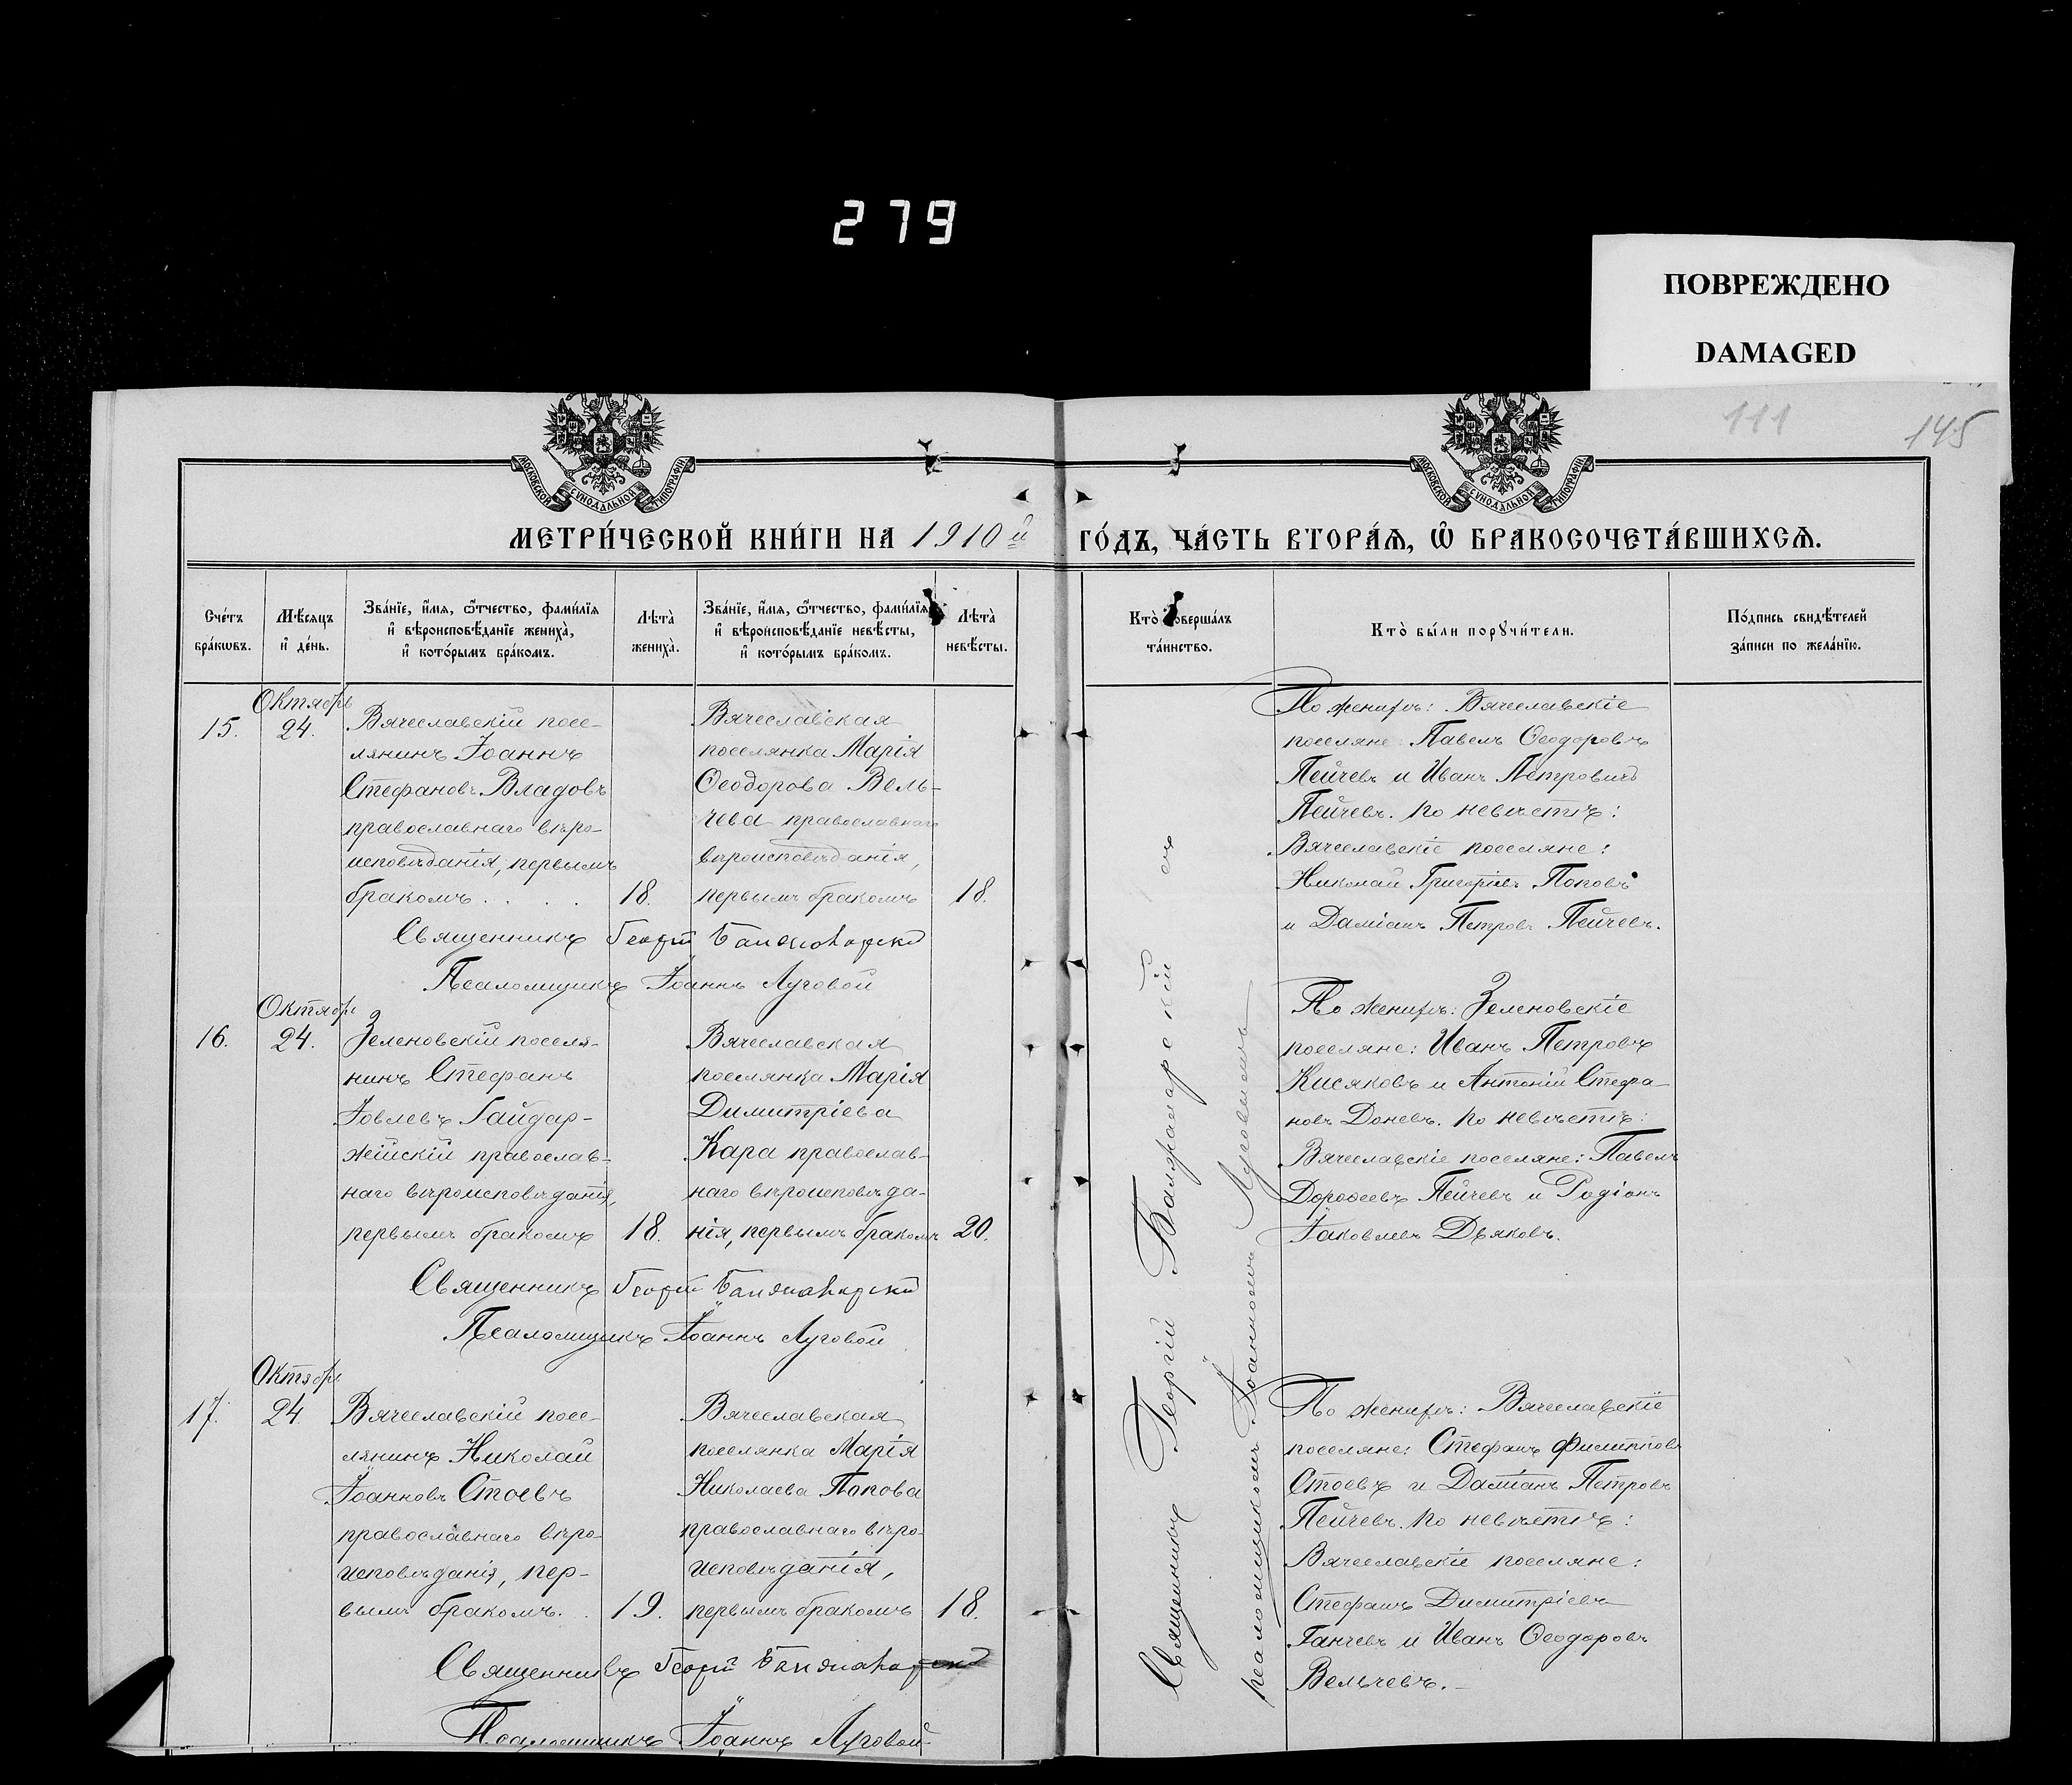 279
ПОВРЕЖДЕНО
DAMAGED
111
145
МОСКОВСКОЙ СѴНОДАЛЬНОЙ ТИПОГРАФІИ
МОСКОВСКОЙ СѴНОДАЛЬНОЙ ТИПОГРАФІИ
МЕТРИ́ЧЕСКОЙ КНИ́ГИ НА 1910й ГО́ДЪ, ЧА́СТЬ ВТОРА́Ѧ, Ѡ҆ БРАКОСОЧЕТА́ВШИХСѦ.
Сче́тъ бра́кѡвъ.
Мѣ́сяцъ и҆ де́нь.
Зва́нїе, и҆́мѧ, ѻ҆́тчество, фами́лїѧ
и҆ вѣроисповѣ́данїе жениха̀,
и҆ кото́рымъ бра́комъ.
Лѣта̀ жениха̀.
Зва́нїе, и҆́мѧ, ѻ҆́тчество, фами́лїѧ
и҆ вѣроисповѣ́данїе невѣ́сты,
и҆ кото́рымъ бра́комъ.
Лѣта̀ невѣ́сты.
Кто̀ соверша́лъ та́инство.
Кто̀ бы́ли порꙋчи́тели.
По́дпись свидѣ́телей
за́писи по жела́нїю.
15.
Октябрь
24.
Вячеславскій посе-
лянинъ Іоаннъ
Стефановъ Владовъ
православнаго вѣро-
исповѣданія, первымъ
бракомъ . . . .
18.
Вячеславская
поселянка Марія
Ѳеодорова Вель-
чева православнаго
вѣроисповѣданія,
первымъ бракомъ
18.
По женихѣ: Вячеславскіе
поселяне: Павелъ Ѳеодоровъ
Пейчевъ и Иванъ Петровичъ
Пейчевъ. По невѣстѣ:
Вячеславскіе поселяне:
Николай Григоріевъ Поповъ
и Даміанъ Петровъ Пейчевъ.
Священникъ Георгій
Псаломщикъ Іоаннъ Луговой
16.
Октябрь
24.
Зеленовскій поселя-
нинъ Стефанъ
Іовлевъ Гайдар-
жійскій православ-
наго вѣроисповѣданія,
первымъ бракомъ
18.
Вячеславская
поселянка Марія
Димитріева
Кара православ-
наго вѣроисповѣда-
нія, первымъ бракомъ
20.
По женихѣ: Зеленовскіе
поселяне: Иванъ Петровъ
Кисяковъ и Антоній Стефа-
новъ Доневъ. По невѣстѣ:
Вячеславскіе поселяне: Павелъ
Дороѳеевъ Пейчевъ и Родіонъ
Іаковлевъ Дяковъ.
Священникъ Георгій
Псаломщикъ Іоаннъ Луговой
17.
Октябрь
24
Вячеславскій посе-
лянинъ Николай
Іоанновъ Стоевъ
православнаго вѣро-
исповѣданія, пер-
вымъ бракомъ. .
19.
Вячеславская
поселянка Марія
Николаева Попова
православнаго вѣро-
исповѣданія,
первымъ бракомъ
18.
По женихѣ: Вячеславскіе
поселяне: Стефанъ Филипповъ
Стоевъ и Даміанъ Петровъ
Пейчевъ. По невѣстѣ:
Вячеславскіе поселяне:
Стефанъ Димитріевъ
Ганчевъ и Иванъ Ѳеодоровъ
Вельчевъ.
Священникъ Георгій
Псаломщикъ Іоаннъ Луговой
Священникъ Георгій съ
псаломщикомъ Іоанномъ Луговымъ